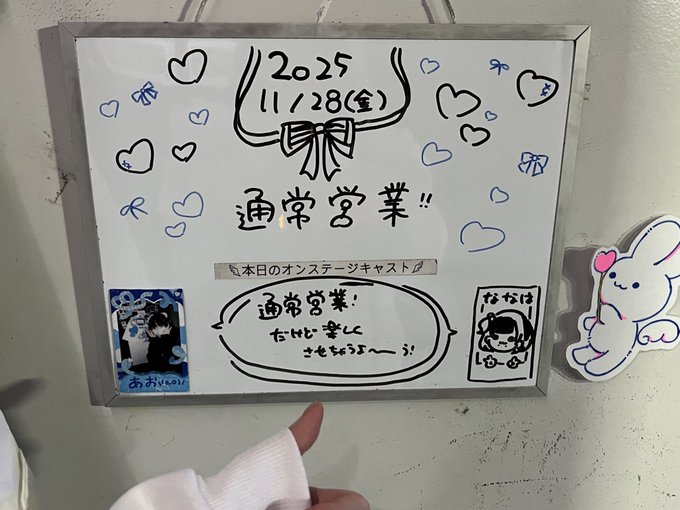 2025
11/28(金)
通常営業!!
本日のオンステージキャスト
通常営業!
だけど楽しく
させちゃうよ〜う!
ななは
あお